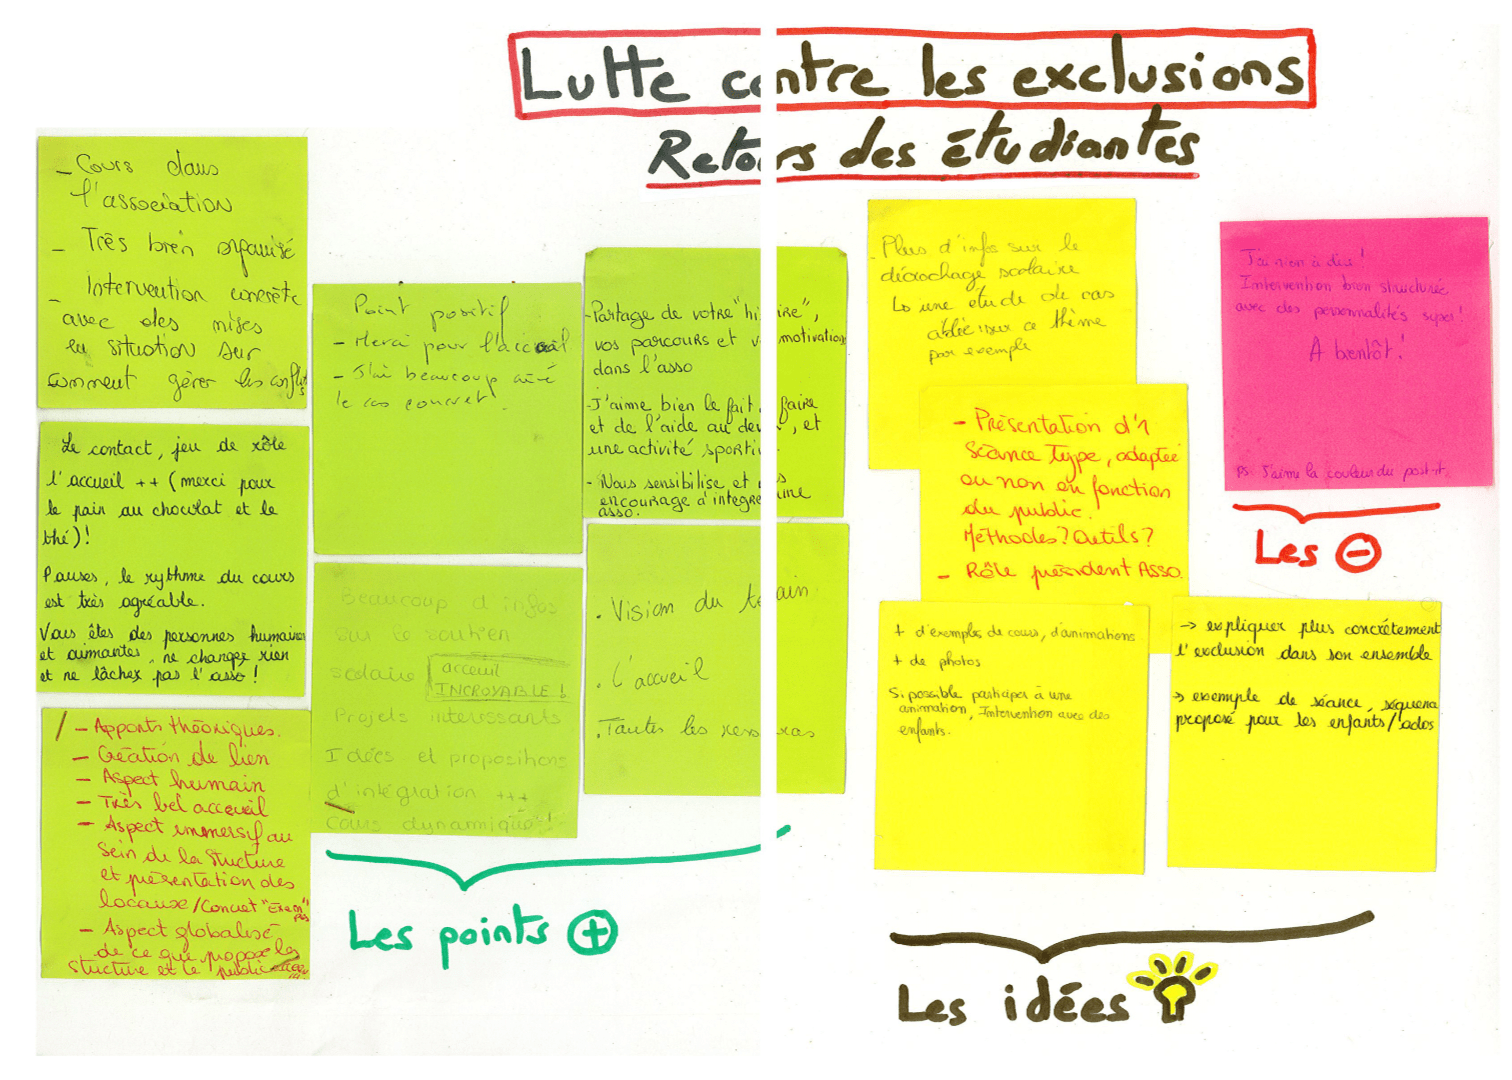 Lutte contre les exclusions
Retours des étudiantes
- Cours dans
l'association
- Très bien organisé
- Intervention concrète
avec des mises
en situation sur
comment gérer les conflits
Le contact, jeu de rôle
l'accueil ++ (merci pour
le pain au chocolat et le
thé)!
Pauses, le rythme du cours
est très agréable.
Vous êtes des personnes humaines
et aimantes, ne changez rien
et ne lâchez pas l'asso !
/ - Apports théoriques.
- Création de lien
- Aspect humain
- Très bel accueil
- Aspect immersif au
sein de la structure
et présentation des
locaux/Concret "Exemples"
- Aspect globalisé
de ce que propose la
structure et le public
Point positif
- Merci pour l'accueil
- J'ai beaucoup aimé
le cas concret.
Beaucoup d'infos
sur le soutien
scolaire
acceuil
INCROYABLE !
Projets interessants
Idées et propositions
d'intégration +++
Cours dynamique !
- Partage de votre "histoire",
vos parcours et vos motivations
dans l'asso
- J'aime bien le fait de faire
et de l'aide au devoir, et
une activité sportive
- Nous sensibilise et nous
encourage à integre une
asso.
. Vision du terrain
. L'accueil
. Toutes les
Les points +
- Plus d'infos sur le
décrochage scolaire
↳ une étude de cas
sur ce thème
par exemple
- Présentation d'1
Séance type, adaptée
ou non en fonction
du public.
Méthodes? Outils?
- Rôle président ASSO.
+ d'exemples de cours, d'animations
+ de photos
Si possible participer à une
animation, Intervention avec des
enfants.
→ expliquer plus concrètement
l'exclusion dans son ensemble
→ exemple de séance, séquence
proposé pour les enfants/ados
Les idées
J'ai rien à dire !
Intervention bien structurée
avec des personnalités super!
A bientôt!
ps: J'aime la couleur du post-it.
Les -